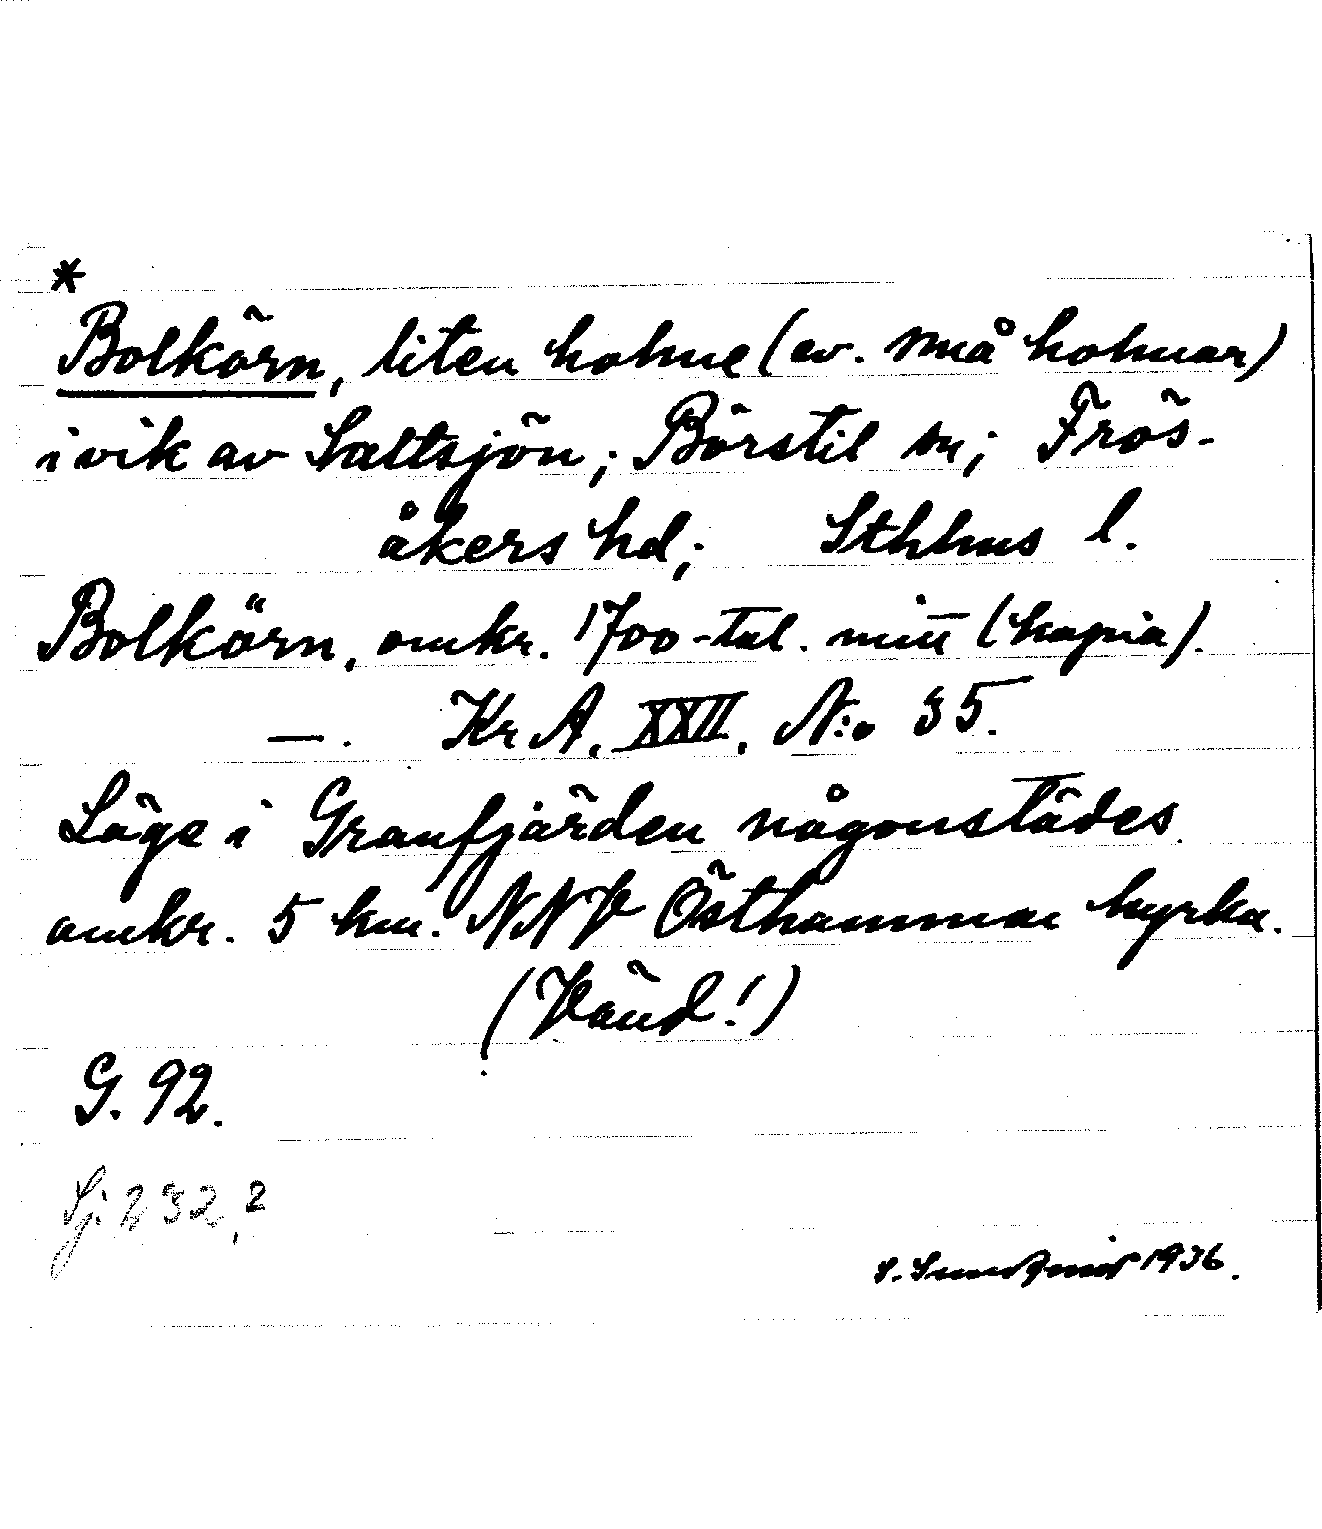 *
Bolkörn, liten holme (ev. små holmar)
i vik av Saltsjön; Börstil sn; Frös-
åkers hd; Sthlms l.
Bolkörn, omkr. 1700-tal. mitt (kopia).
—. KrA, XXII, N:o 35.
Läge i Granfjärden någonstädes
omkr. 5 km. NNV Östhammar kyrka.
(Vänd!)
G. 92.
Sj. 232,2
S. 1936.